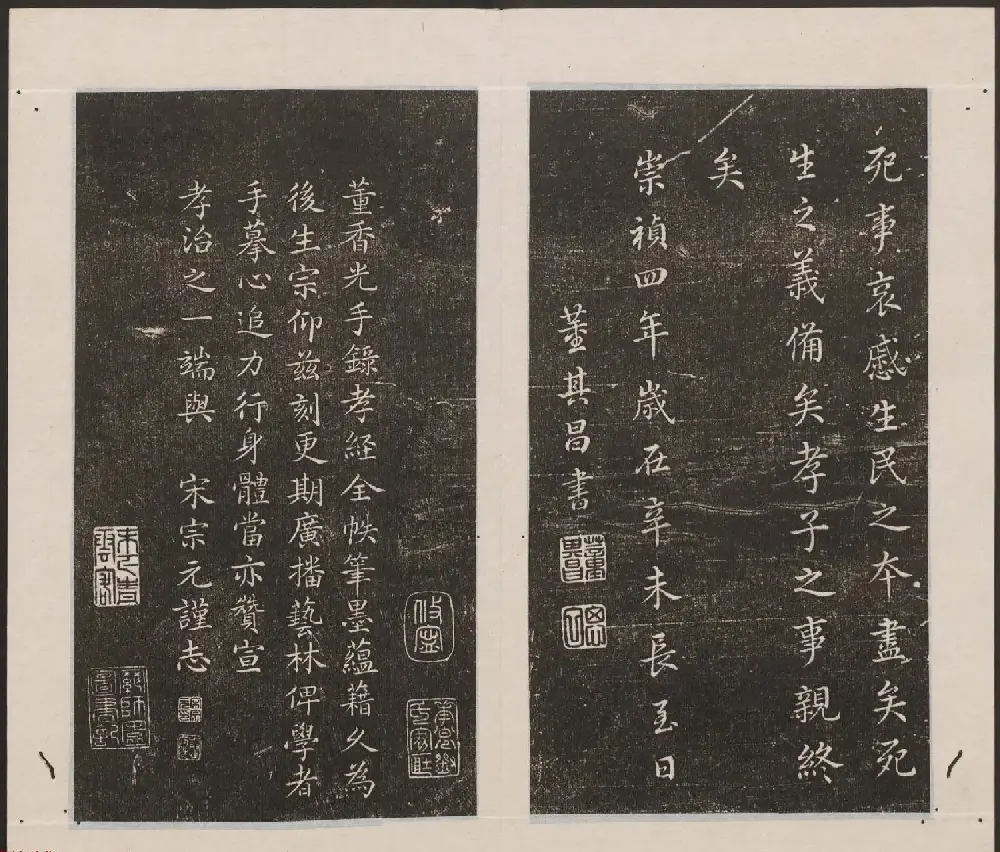 死事哀慼生民之本盡矣死
生之義備矣孝子之事親終
矣
崇禎四年歲在辛未長至日
董其昌書
董香光手錄孝經全帙筆墨蘊藉久為
後生宗仰茲刻更期廣播藝林俾學者
手摹心追力行身體當亦贊宣
孝治之一端與 宋宗元謹志